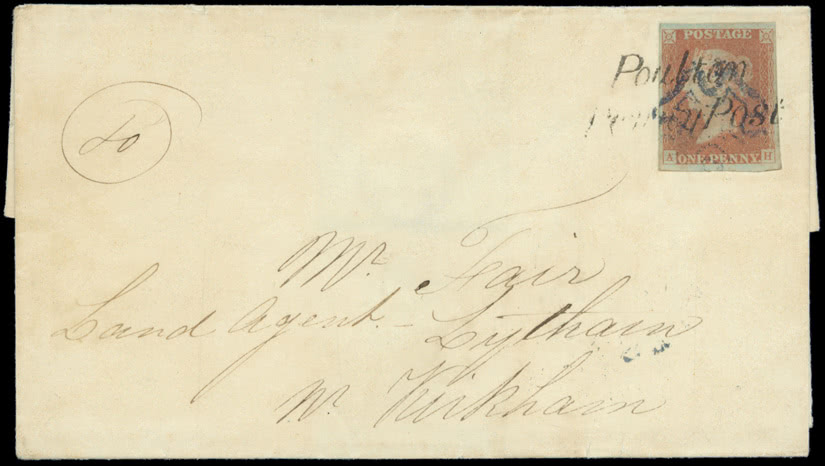 POSTAGE
Poulton
Penny Post
A ONE PENNY. H
Mr. Fair
Land Agent - Lytham
Nr. Kirkham